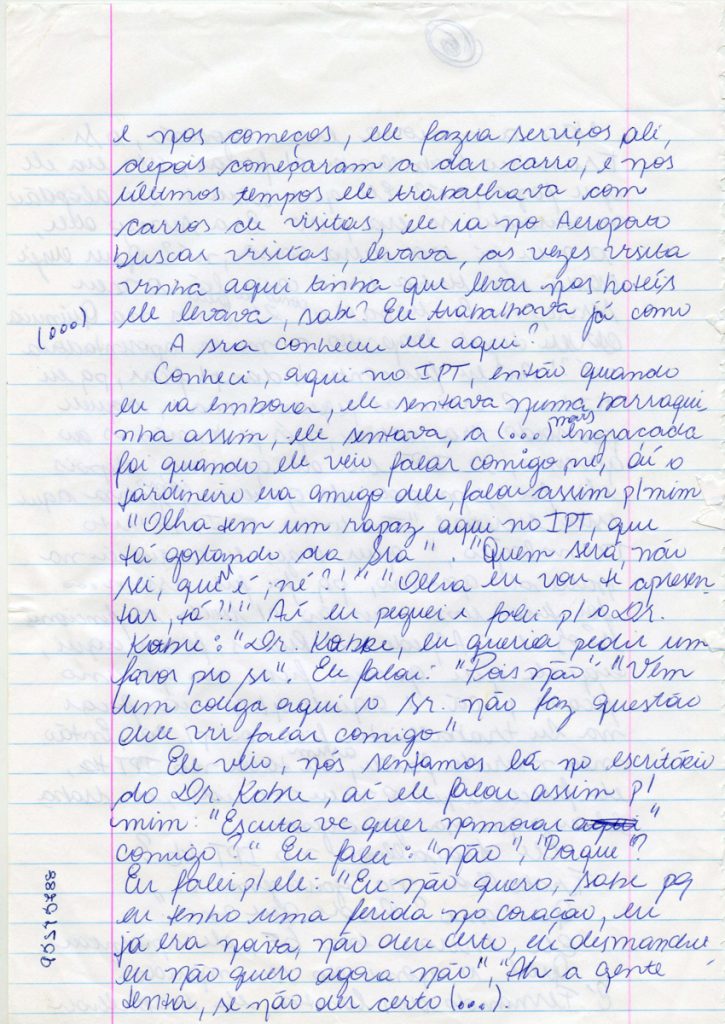 6
e nos começos, ele fazia serviços ali,
depois começaram a dar carro, e nos
últimos tempos ele trabalhava com
carros de visitas, ele ia no Aeroporto
buscar visitas, levava, as vezes visita
vinha aqui tinha que levar nos hotéis
ele levava, sabe? Eu trabalhava já como
(...)
A sra conheceu ele aqui?
Conheci, aqui no IPT, então quando
eu ia embora, ele sentava numa barraqui
nha assim, ele sentava, a (...) mais engraçada
foi quando ele veio falar comigo né, aí o
jardineiro era amigo dele, falou assim p/ mim
"Olha tem um rapaz aqui no IPT, que
tá gostando da Sra". "Quem será, não
sei, quem é, né?!" "Olha eu vou te apresen-
tar, tá?!!" Aí eu peguei e falei p/ o Dr.
Kobe: "Dr. Kobe, eu queria pedir um
favor pro sr". Eu falei: "Pois não" "Vem
um colega aqui o sr. não faz questão
dele vir falar comigo"
Ele veio, nós sentamos lá no escritório
do Dr. Kobe, aí ele falou assim p/
mim: "Escuta vc quer namorar aqui"
comigo?" Eu falei: "não", "Porque"?
Eu falei p/ ele: "Eu não quero, sabe pq
eu tenho uma ferida no coração, eu
já era noiva, não deu certo, eu desmanchei
eu não quero agora não", "Ah a gente
tenta, se não der certo (...).